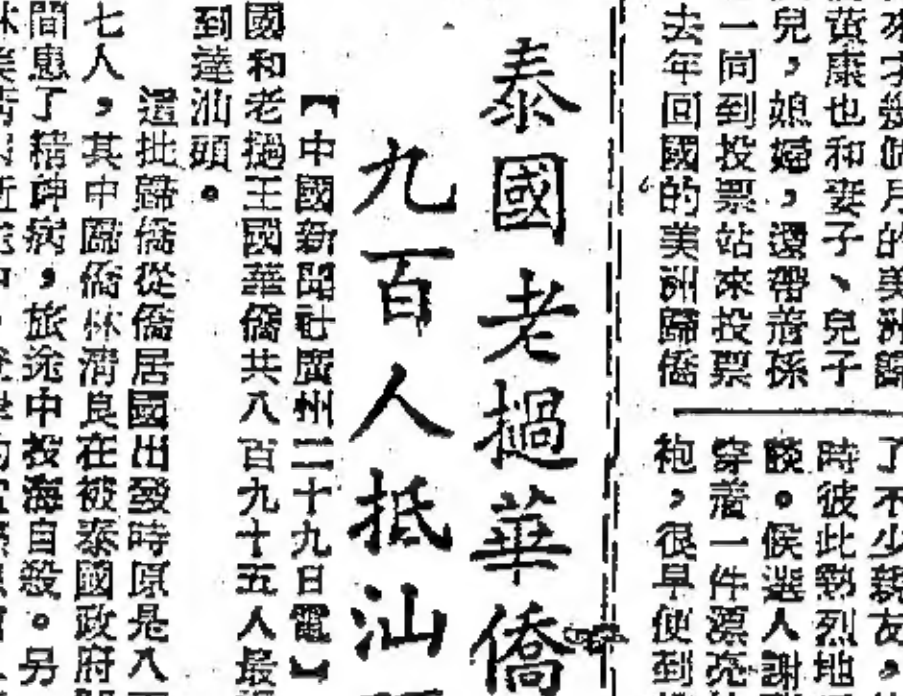 去年回國的美洲歸僑
一同到投票站來投票
兒，媳婦，還帶着孫
黃康也和妻子、兒子
來才幾個月的美洲歸
了不少親友，
時彼此熱烈地
談。候選人謝
穿着一件漂亮
袍，很早便到
泰國老撾華僑
九百人抵汕
【中國新聞社廣州二十九日電】
國和老撾王國華僑共八百九十五人最
到達汕頭。
這批歸僑從僑居國出發時原是八
七人，其中歸僑林清良在被泰國政府
間患了精神病，旅途中投海自殺。另